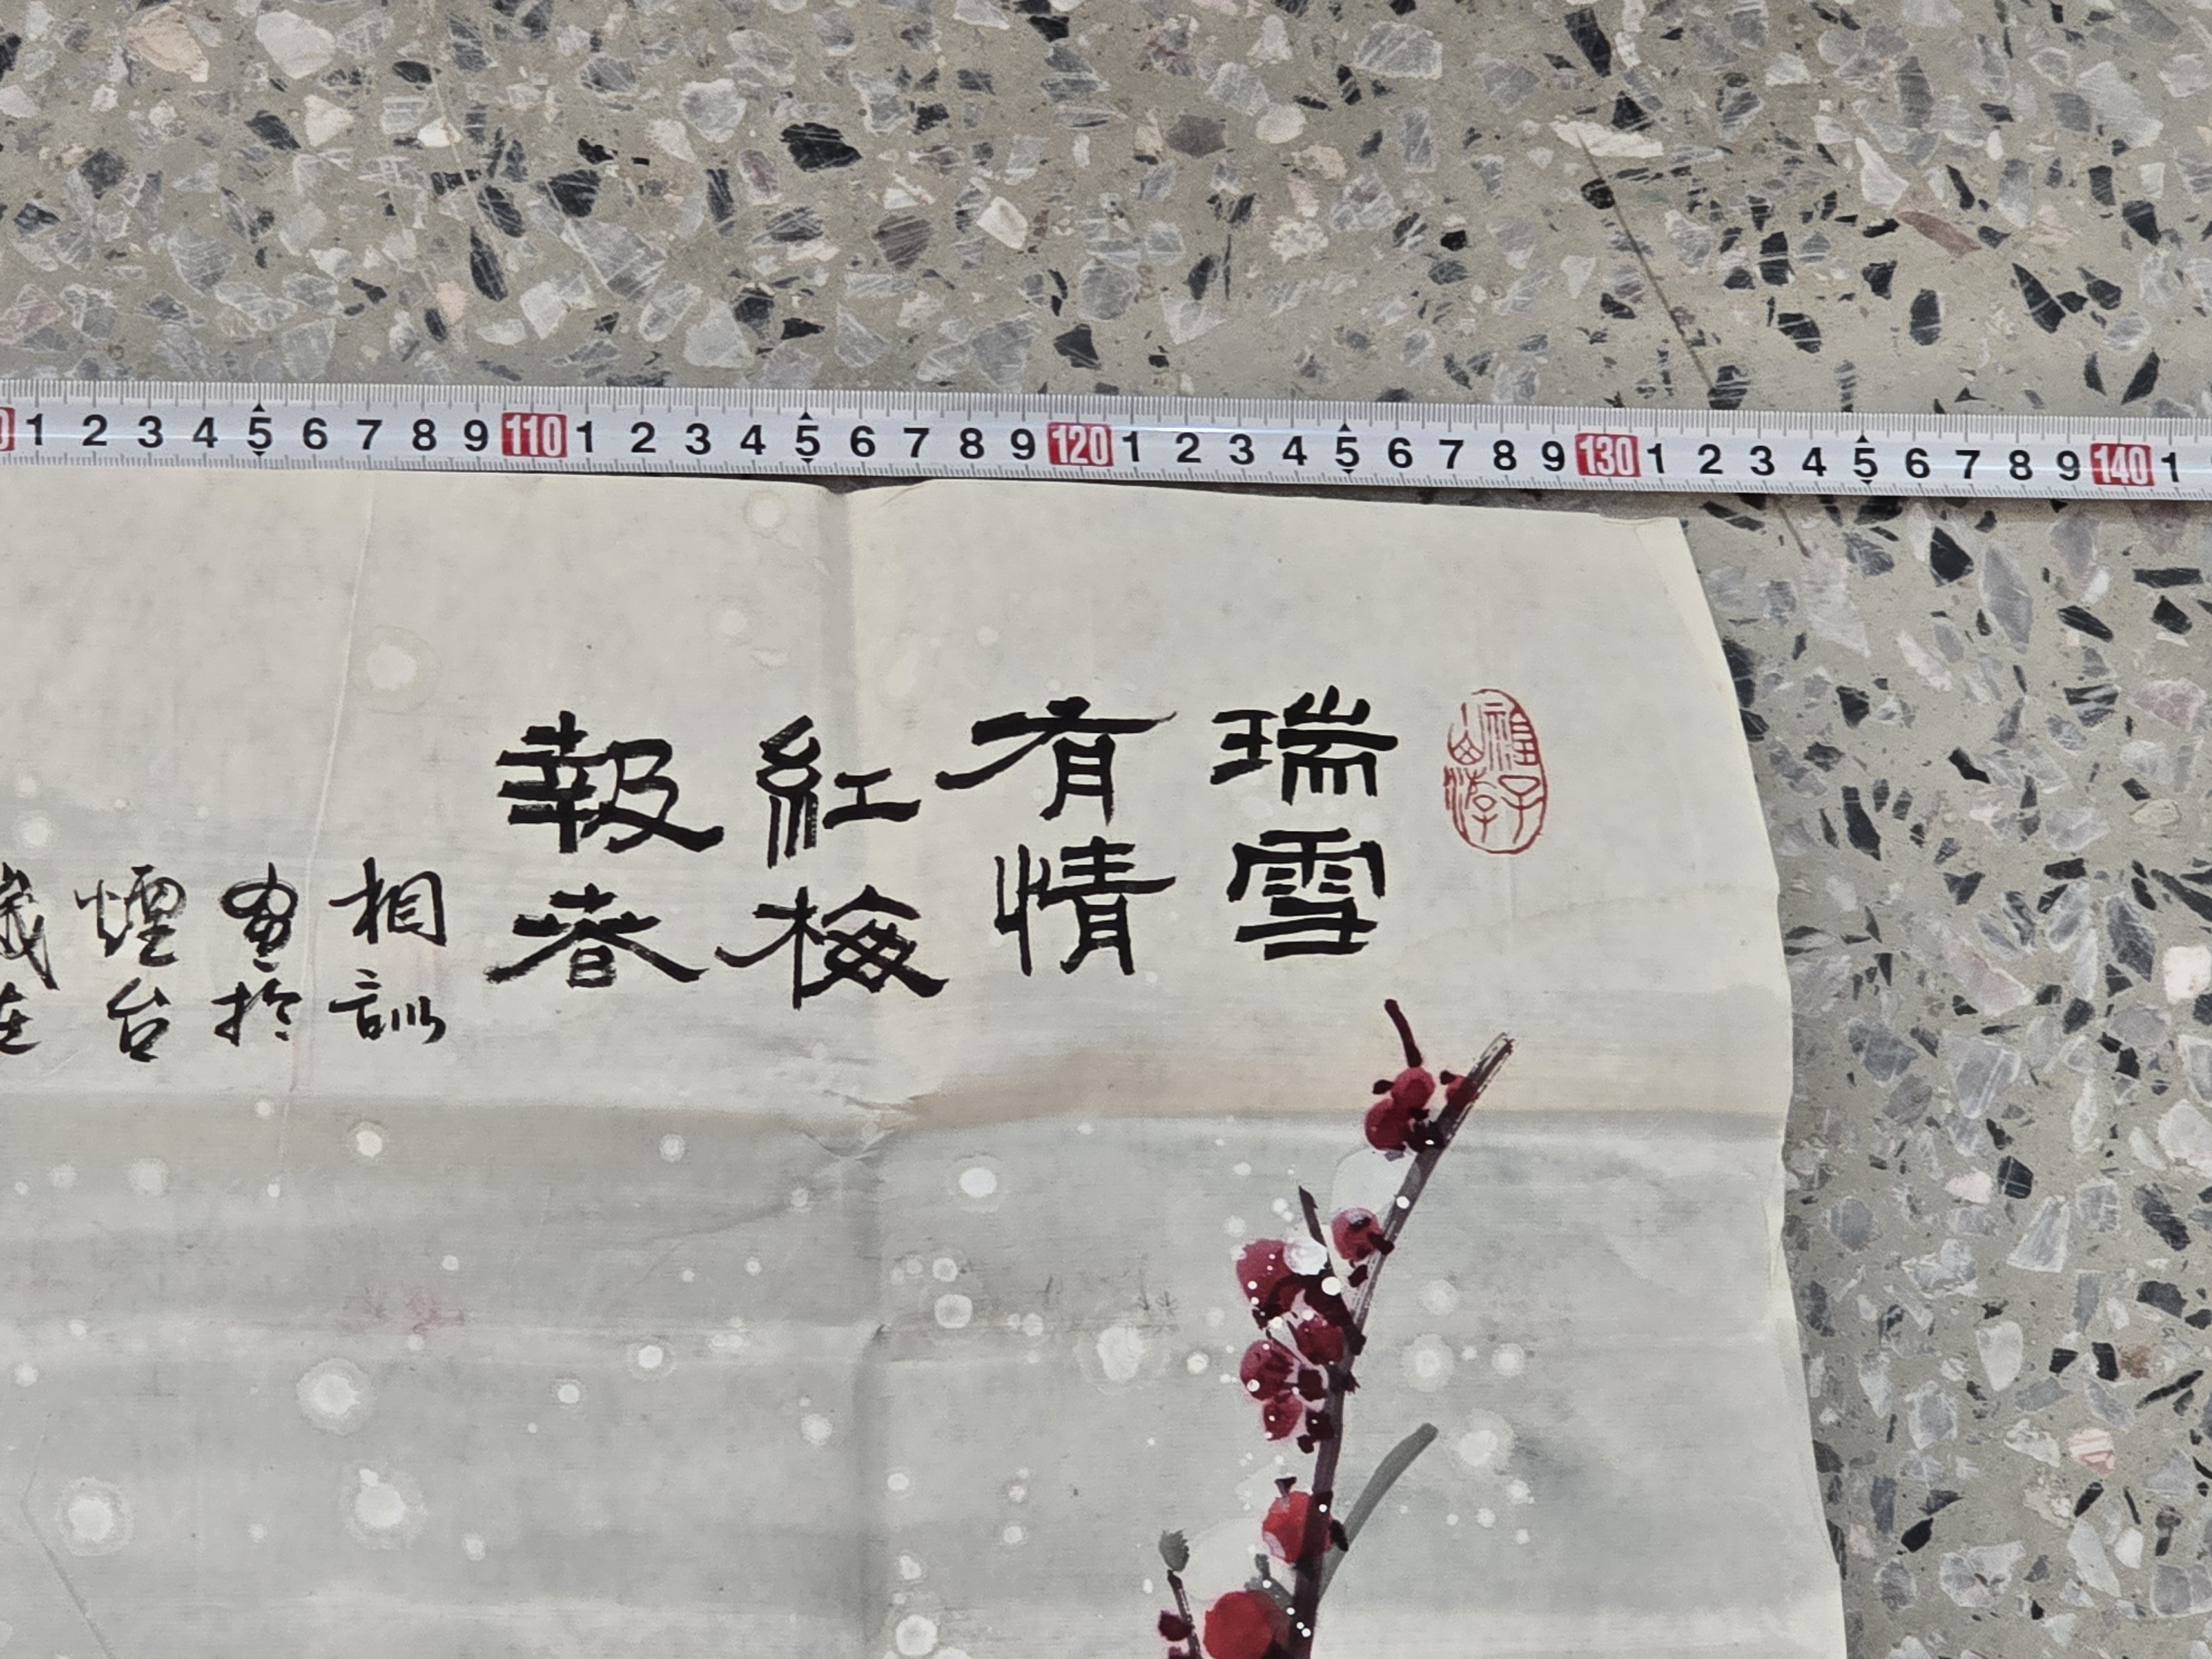 1 2 3 4 5 6 7 8 9 110 1 2 3 4 5 6 7 8 9 120 1 2 3 4 5 6 7 8 9 130 1 2 3 4 5 6 7 8 9 140 1
瑞雪
有情
紅梅
報春
相訓
畫於
煙台